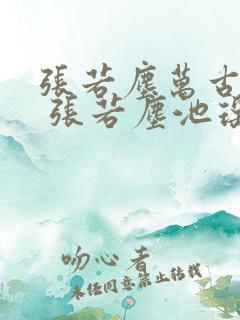 張若塵萬古
張若塵池
吻心者
未任同意禁止转载